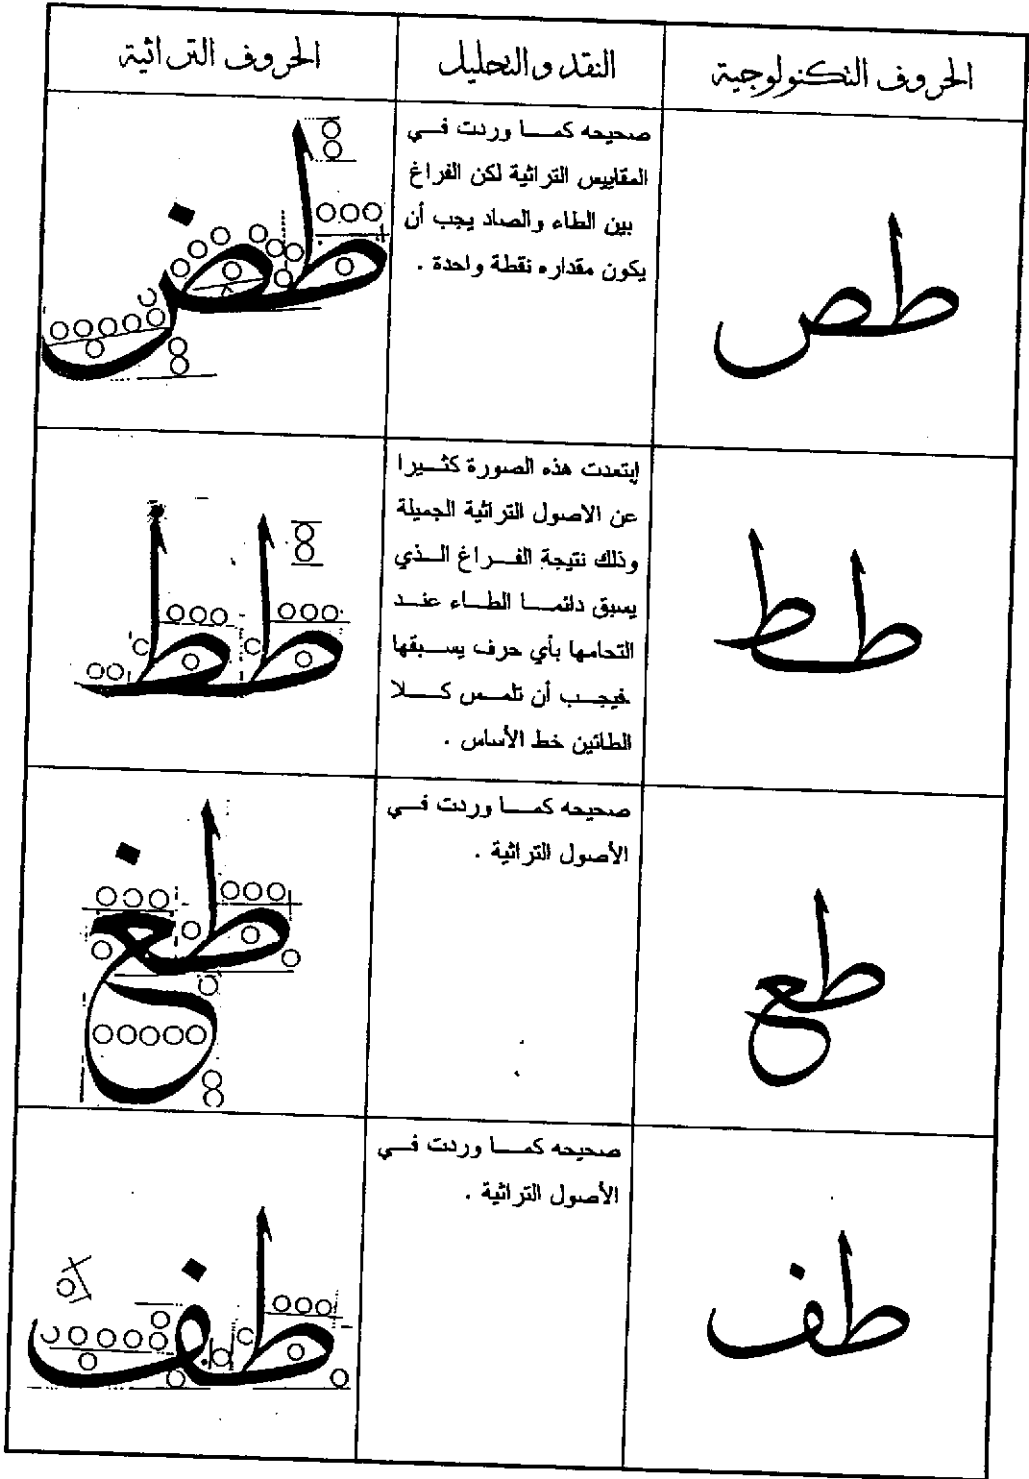 الحروف التكنولوجية
النقد والتحليل
الحروف التراثية
طص
صحيحه كما وردت في
المقاييس التراثية لكن الفراغ
بين الطاء والصاد يجب أن
يكون مقداره نقطة واحدة .
طض
طط
إبتعدت هذه الصورة كثيرا
عن الاصول التراثية الجميلة
وذلك نتيجة الفراغ الذي
يسبق دائما الطاء عند
التحامها بأي حرف يسبقها
فيجب أن تلمس كلا
الطائين خط الأساس .
طط
طع
صحيحه كما وردت في
الأصول التراثية .
طغ
طف
صحيحه كما وردت في
الأصول التراثية .
طف